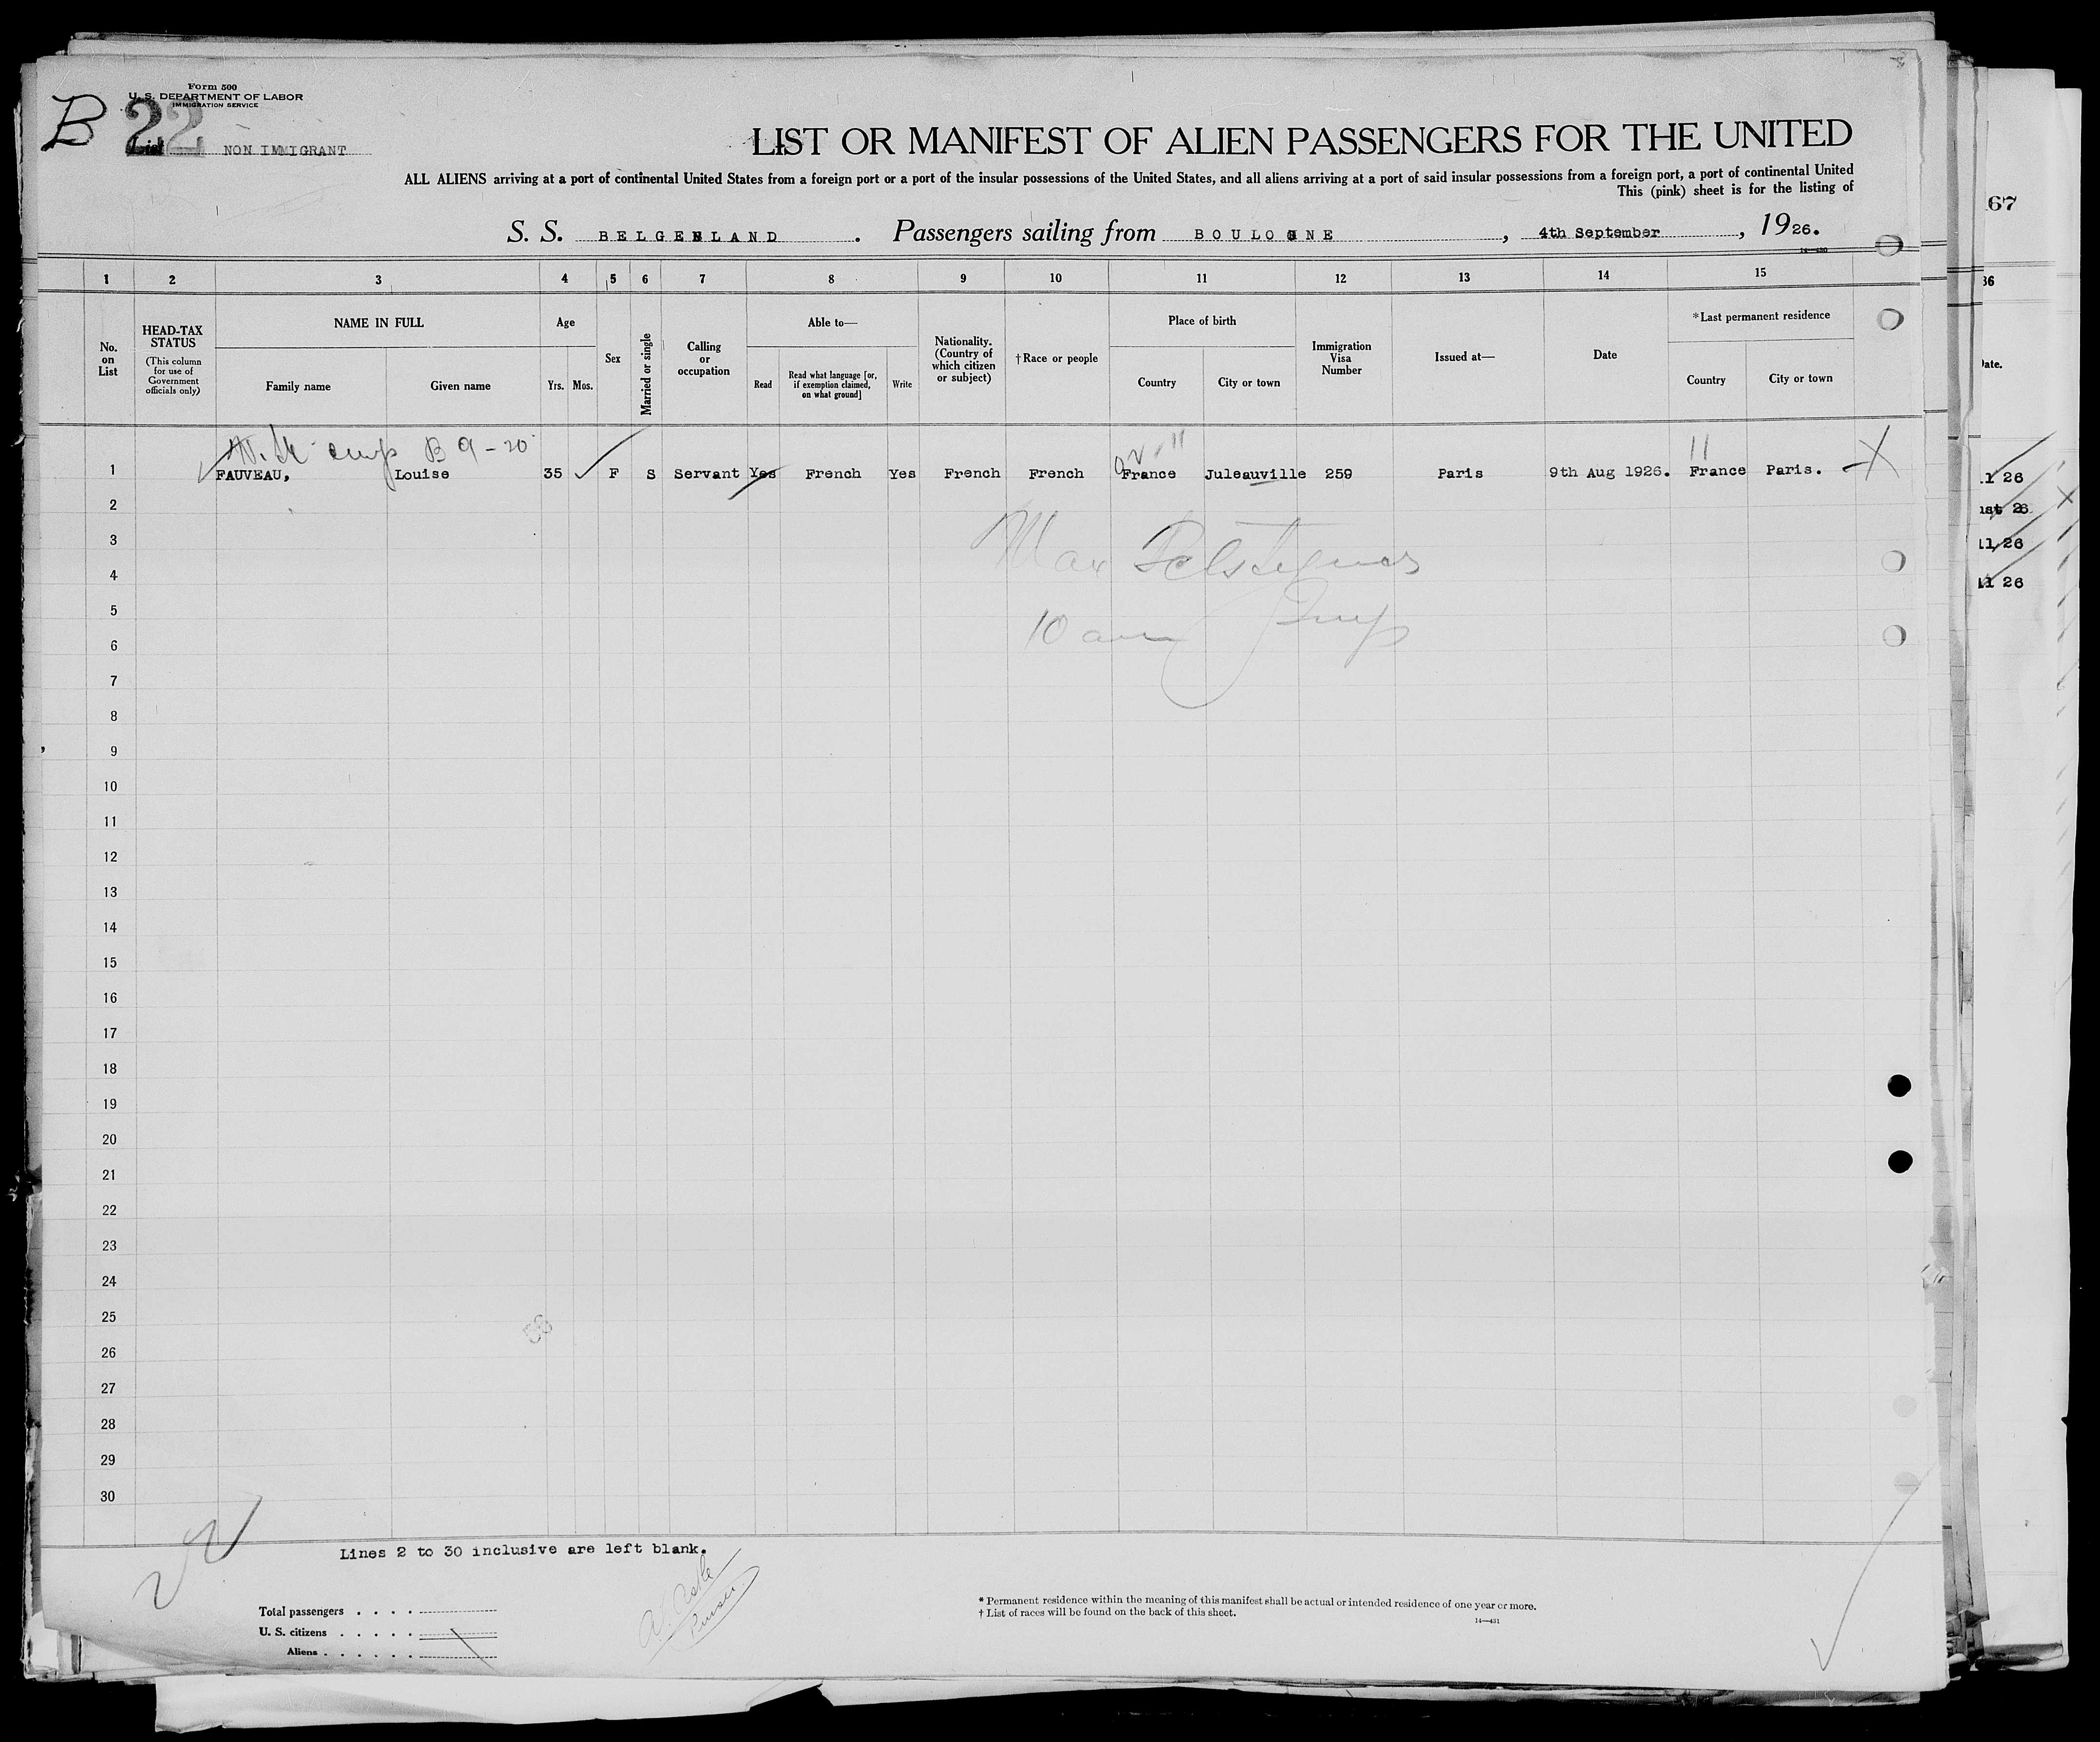 Form 500
U. S. DEPARTMENT OF LABOR
IMMIGRATION SERVICE
B 22
List NON IMMIGRANT
LIST OR MANIFEST OF ALIEN PASSENGERS FOR THE UNITED
ALL ALIENS arriving at a port of continental United States from a foreign port or a port of the insular possessions of the United States, and all aliens arriving at a port of said insular possessions from a foreign port, a port of continental United
This (pink) sheet is for the listing of
S. S. BELGENLAND. Passengers sailing from BOULOGNE, 4th September, 1926.
14—430
67
1 2 3 4 5 6 7 8 9 10 11 12 13 14 15
36
No. on List
HEAD-TAX STATUS (This column for use of Government officials only)
NAME IN FULL
Family name Given name
Age
Yrs. Mos.
Sex
Married or single
Calling or occupation
Able to—
Read
Read what language [or, if exemption claimed, on what ground]
Write
Nationality. (Country of which citizen or subject)
†Race or people
Place of birth
Country City or town
Immigration Visa Number
Issued at—
Date
*Last permanent residence
Country City or town
Date.
B 9-20
11
1 FAUVEAU, Louise 35 F S Servant Yes French Yes French French France Juleauville 259 Paris 9th Aug 1926. France Paris. X
2
3
4
5
6
7
8
9
10
11
12
13
14
15
16
17
18
19
20
21
22
23
24
25
26
27
28
29
30
Max
10 am
26
26
26
Lines 2 to 30 inclusive are left blank.
Purser
Total passengers . . . .
U. S. citizens . . . . .
Aliens . . . . . .
* Permanent residence within the meaning of this manifest shall be actual or intended residence of one year or more.
† List of races will be found on the back of this sheet.
14—431